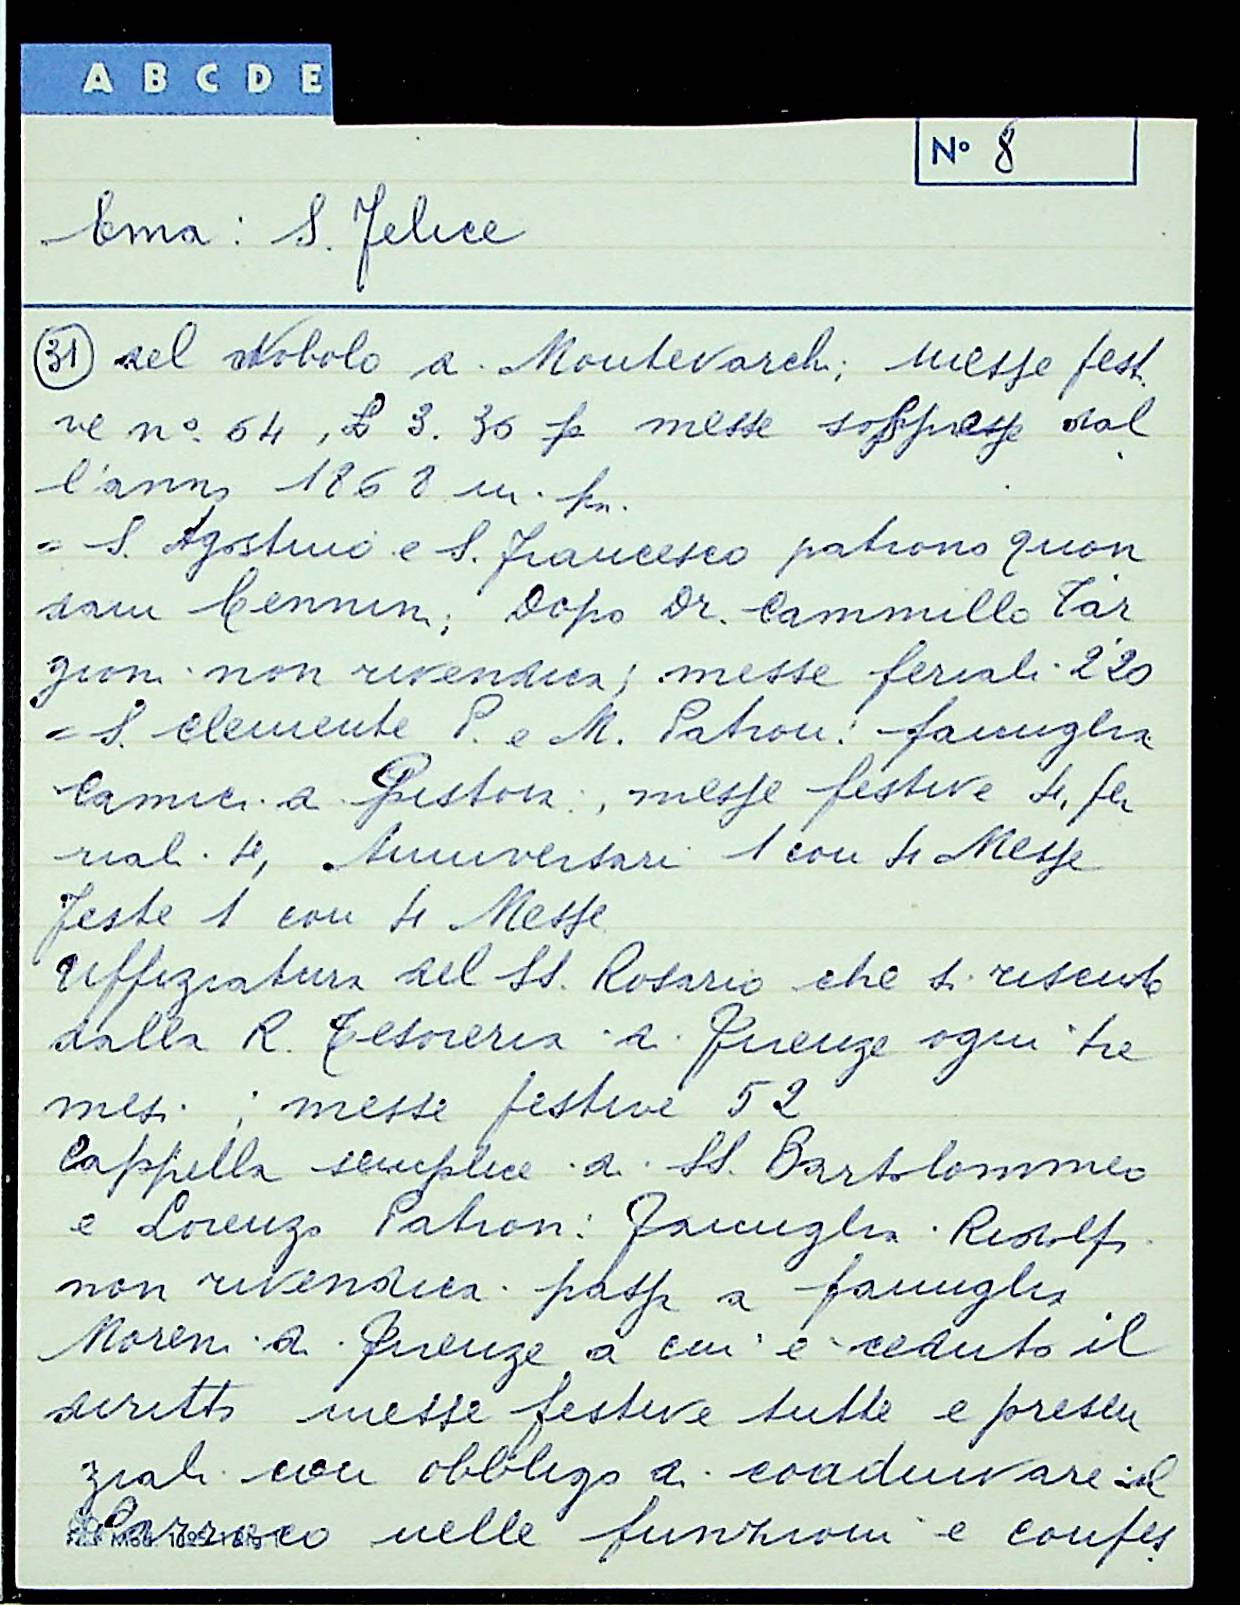 A B C D E
N° 8
Ema: S. Felice
31 del Nobolo a Montevarchi; messe festi
ve n°. 64, £ 3.36 p messe soppresse dal
l'anno 1868 in. pn.
= S. Agostino e S. Francesco patrono quon
dam Cennini; Dopo Dr. Cammillo Tar
gioni non rivendica; messe feriali 220
= S. Clemente P. e M. Patron: famiglia
Camici a Pistoia, messe festive 4, fe
riali 4, Anniversari 1 con 4 Messe
Feste 1 con 4 Messe
Uffiziatura del SS. Rosario che si riscuote
dalla R. Tesoreria di Firenze ogni tre
mesi; messe festive 52
Cappella semplice di SS. Bartolommeo
e Lorenzo Patron: Famiglia Ridolfi
non rivendica passa a famiglia
Moreni di Firenze a cui è ceduto il
diritto messe festive tutte e presen
ziali con obbligo di coadiuvare il
Parroco nelle funzioni e confes